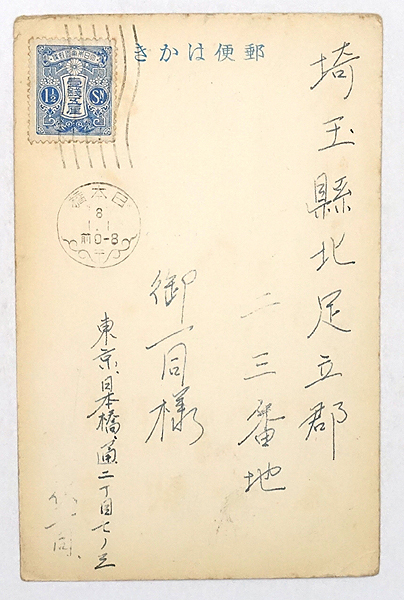 郵便はかき
大日本帝國郵便
壹錢五厘
1½ Sn
日本橋
8
1.1
前0-8
埼玉縣北足立郡
二三番地
御一同様
東京、日本橋、通二丁目七ノ三
一同、